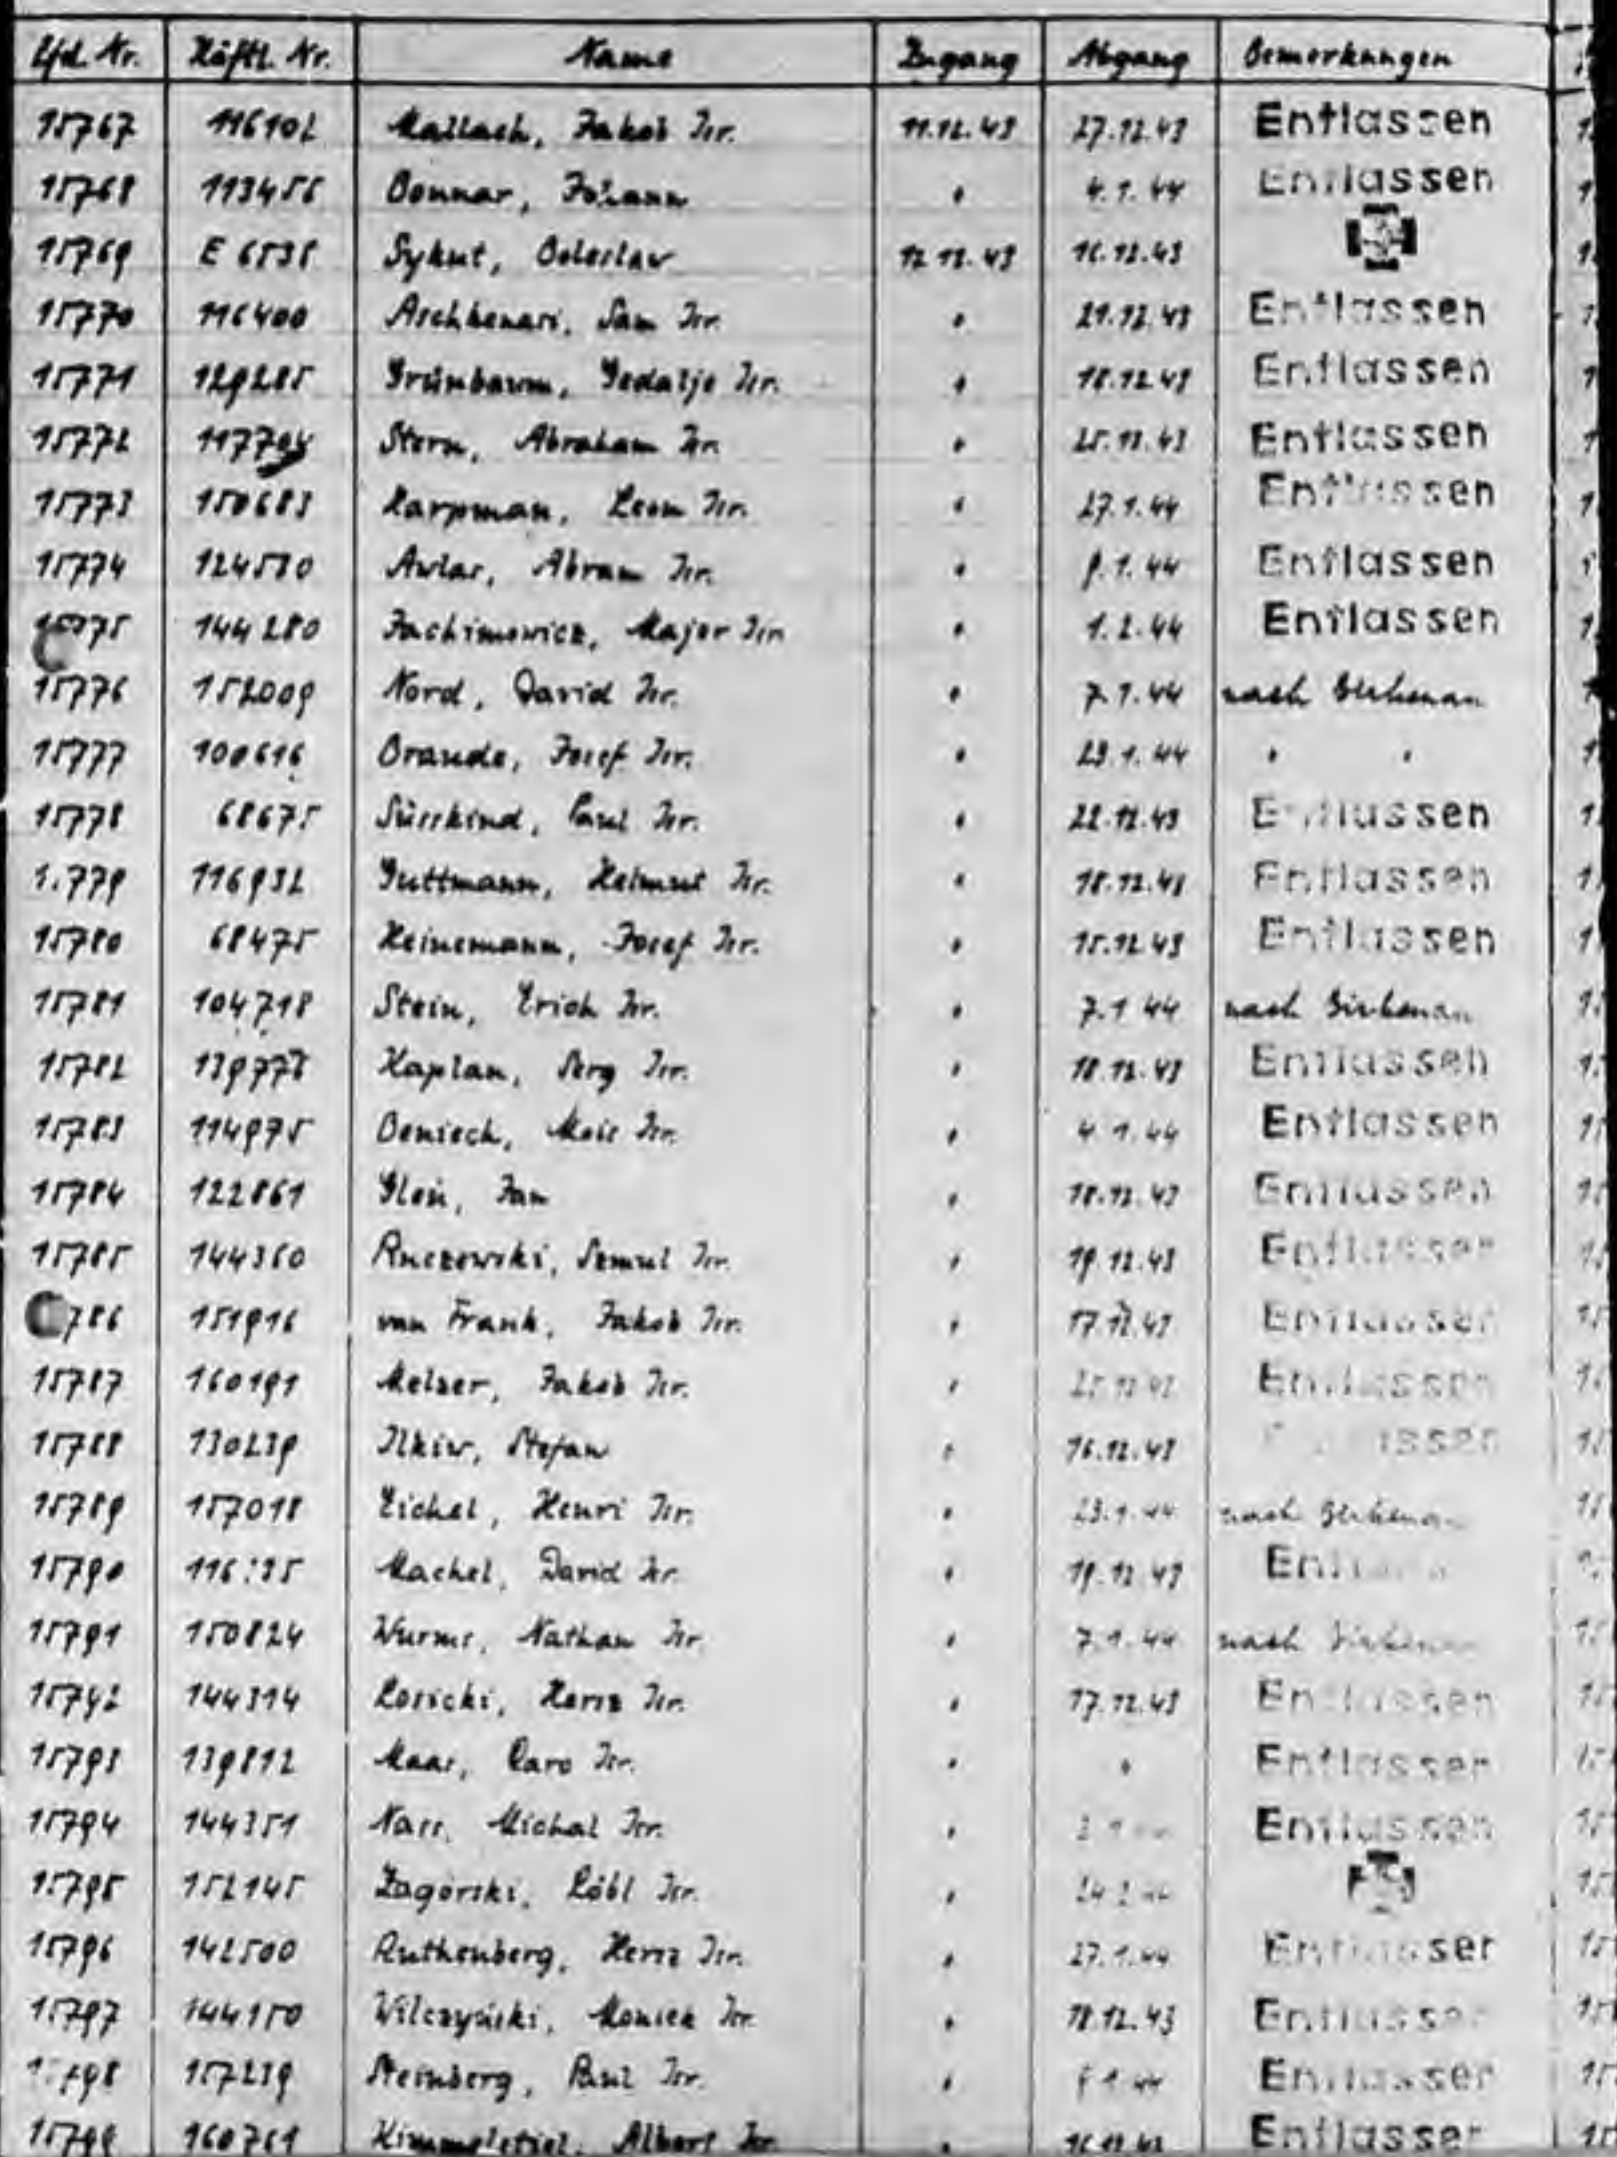 Lfd. Nr. Häftl. Nr. Name Zugang Abgang Bemerkungen
15767 116102 Mallach, Jakob Isr. 11.12.43 27.12.43 Entlassen
15768 113456 Bonnar, Johann " 4.1.44 Entlassen
15769 E 6535 Sykut, Boleslaw 12.12.43 16.12.43
15770 116400 Aschkenasi, Sam Isr. " 21.12.43 Entlassen
15771 129285 Grünbaum, Gedalje Isr. " 18.12.43 Entlassen
15772 Stern, Abraham Isr. " 25.12.43 Entlassen
15773 150683 Karpman, Leon Isr. " 27.1.44 Entlassen
15774 124530 Awlas, Abram Isr. " 9.1.44 Entlassen
15775 144280 Jachimowicz, Major Isr. " 1.2.44 Entlassen
15776 152009 Nord, David Isr. " 7.1.44 nach Birkenau
15777 100616 Brande, Josef Isr. " 23.1.44 " "
15778 68675 Süsskind, Paul Isr. " 22.12.43 Entlassen
15779 116932 Guttmann, Helmut Isr. " 18.12.43 Entlassen
15780 68475 Heinemann, Josef Isr. " 15.12.43 Entlassen
15781 104718 Stein, Erich Isr. " 7.1.44 nach Birkenau
15782 139778 Kaplan, Serg Isr. " 18.12.43 Entlassen
15783 114975 Beniech, Mois Isr. " 4.1.44 Entlassen
15784 122861 Gleń, Jan " 18.12.43 Entlassen
15785 144360 Ruczewski, Szmul Isr. " 19.12.43 Entlassen
786 151916 van Frank, Jakob Isr. " 17.12.43 Entlassen
15787 160191 Melzer, Jakob Isr. " Entlassen
15788 130239 Ilkiw, Stefan " 16.12.43
15789 157018 Eichel, Henri Isr. " 23.1.44 nach Birkenau
15790 Machel, David Isr. " 19.12.43
15791 150824 Wurms, Nathan Isr. " 7.1.44 nach Birkenau
15792 144314 Losicki, Hersz Isr. " 17.12.43 Entlassen
15793 139812 Maas, Caro Isr. " " Entlassen
15794 144351 Nass, Michal Isr. " Entlassen
15795 152145 Zagórski, Löbl Isr. "
15796 142500 Ruthenberg, Hersz Isr. " 27.1.44 Entlassen
15797 144150 Wilczyński, Moniek Isr. " 18.12.43 Entlassen
15798 157239 Steinberg, Paul Isr. " Entlassen
15799 160761 Albert Isr. " Entlassen